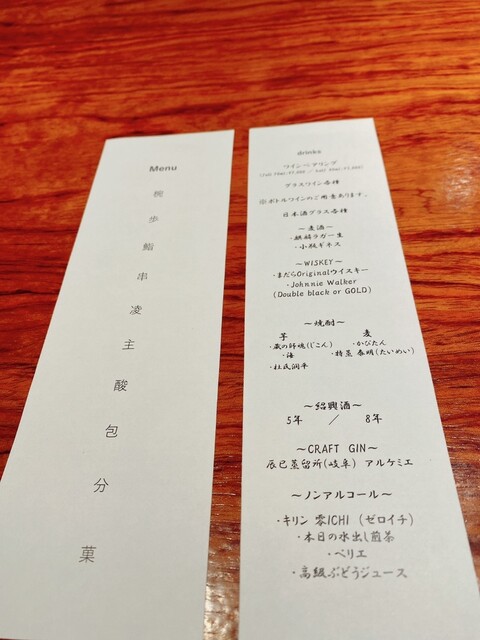 Menu
椀
歩
鮨
串
凌
主
酸
包
分
菓
drinks
ワインペアリング
グラスワイン各種
※ボトルワインのご用意あります。
日本酒グラス各種
～麦酒～
・麒麟ラガー生
・小瓶ギネス
～WISKEY～
・まだらOriginalウイスキー
・Johnnie Walker
(Double black or GOLD)
～焼酎～
芋 麦
・蔵の師魂(じこん) ・かぴたん
・海 ・特蒸 泰明(たいめい)
・杜氏潤平
～紹興酒～
5年 / 8年
～CRAFT GIN～
辰巳蒸留所(岐阜) アルケミエ
～ノンアルコール～
・キリン 零ICHI (ゼロイチ)
・本日の水出し煎茶
・ペリエ
・高級ぶどうジュース